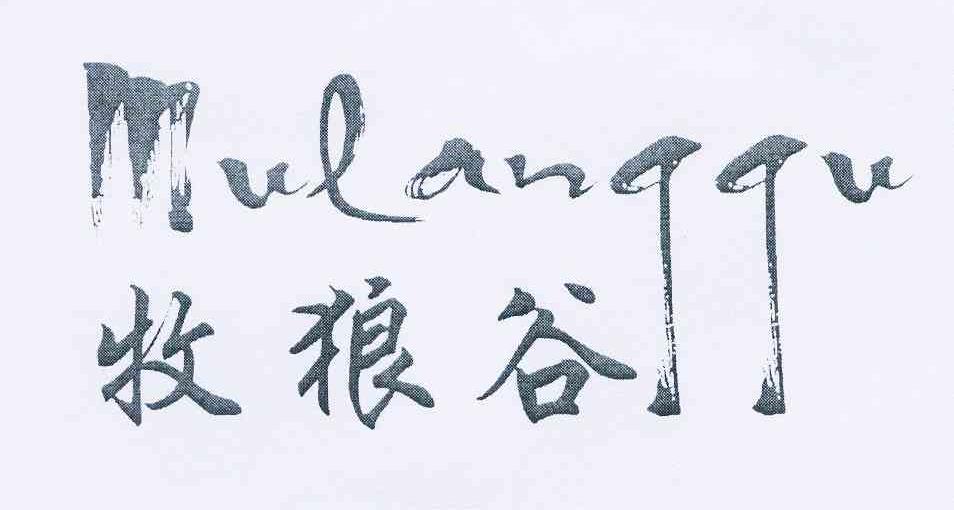 Mulanggu
牧狼谷